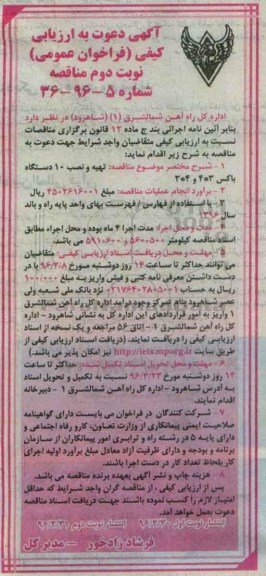 آگهی دعوت به ارزیابی
کیفی (فراخوان عمومی)
نوبت دوم مناقصه
شماره ۵-۹۶-۳۶
اداره کل راه آهن شمالشرق (۱) (شاهرود) در نظر دارد
بنابر آئین نامه اجرائی بند ج ماده ۱۲ قانون برگزاری مناقصات
نسبت به ارزیابی کیفی متقاضیان واجد شرایط جهت دعوت به
مناقصه به شرح زیر اقدام نماید:
۱- شرح مختصر موضوع مناقصه: تهیه و نصب ۱۰ دستگاه
باکس ۳در۲ و ۴در۳
۲- برآورد انجام عملیات مناقصه: مبلغ ۴۵۰۲۶۱۶۰۰۱ ریال
۳- با استفاده از فهارس / فهرست بهای واحد پایه راه و باند
سال ۱۳۹۶
۴- مدت و محل اجراء: مدت اجرا ۴ ماه بوده و محل اجراء مطابق
اسناد مناقصه کیلومتر ۵۰۰+۵۶۰ و ۶۰۰+۵۹۱ می باشد.
۵- مهلت و محل دریافت اسناد ارزیابی کیفی: متقاضیان
می توانند حداکثر تا ساعت ۱۴ روز دوشنبه مورخ ۹۶/۳/۸ با در
دست داشتن معرفی نامه کتبی و فیش واریز به مبلغ ۱۰۰۰/۰۰۰
ریال به حساب نزد بانک ملی شعبه ولی
عصر شاهرود بنام تمرکز وجوه درآمد اداره کل راه آهن شمالشرق
۱ واریز به امور قراردادهای این اداره کل به نشانی شاهرود - اداره
کل راه آهن شمالشرق ۱ - اتاق ۵۶ مراجعه و یک نسخه از اسناد
ارزیابی کیفی را دریافت نمایند. (دریافت اسناد ارزیابی کیفی از
طریق سایت http://iets.mporg.ir نیز امکان پذیر می باشد.)
۶- مهلت و محل تحویل اسناد تکمیل شده: حداکثر تا ساعت
۱۴ روز دوشنبه مورخ ۹۶/۳/۲۲ نسبت به تکمیل و تحویل اسناد
به آدرس شاهرود - اداره کل راه آهن شمالشرق ۱ - دبیرخانه
اقدام نمایند.
۷- شرکت کنندگان در فراخوان می بایست دارای گواهینامه
صلاحیت ایمنی پیمانکاری از وزارت تعاون، کار و رفاه اجتماعی و
دارای پایه ۵ در رشته راه و ترابری امور پیمانکاران از سازمان
برنامه و بودجه و دارای ظرفیت آزاد معادل مبلغ برآورد اولیه اجرای
کار بلحاظ تعداد کار در دست اجرا باشند.
هزینه چاپ و نشر آگهی بعهده برنده مناقصه می باشد.
پس از ارزیابی کیفی، از مناقصه گران واجد شرایط که حداقل
امتیاز لازم را کسب نموده باشند جهت دریافت اسناد مناقصه
دعوت بعمل خواهد آمد.
انتشار نوبت اول ۹۶/۲/۳۰ انتشار نوبت دوم ۹۶/۲/۳۱
فرشاد زادخور - مدیر کل